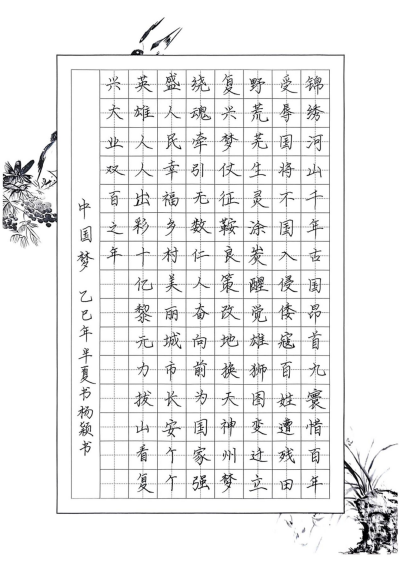 锦绣河山千年古国昂首九寰惜百年
受辱国将不国入侵倭寇百姓遭残田
野荒芜生灵涂炭醒觉雄狮图变迁立
复兴梦仗征鞍良策改地换天神州梦
绕魂牵引无数仁人奋向前为国家强
盛人民幸福乡村美丽城市长安个个
英雄人人出彩十亿黎元力拔山看复
兴大业双百之年
中国梦 乙巳年半夏书杨颖书